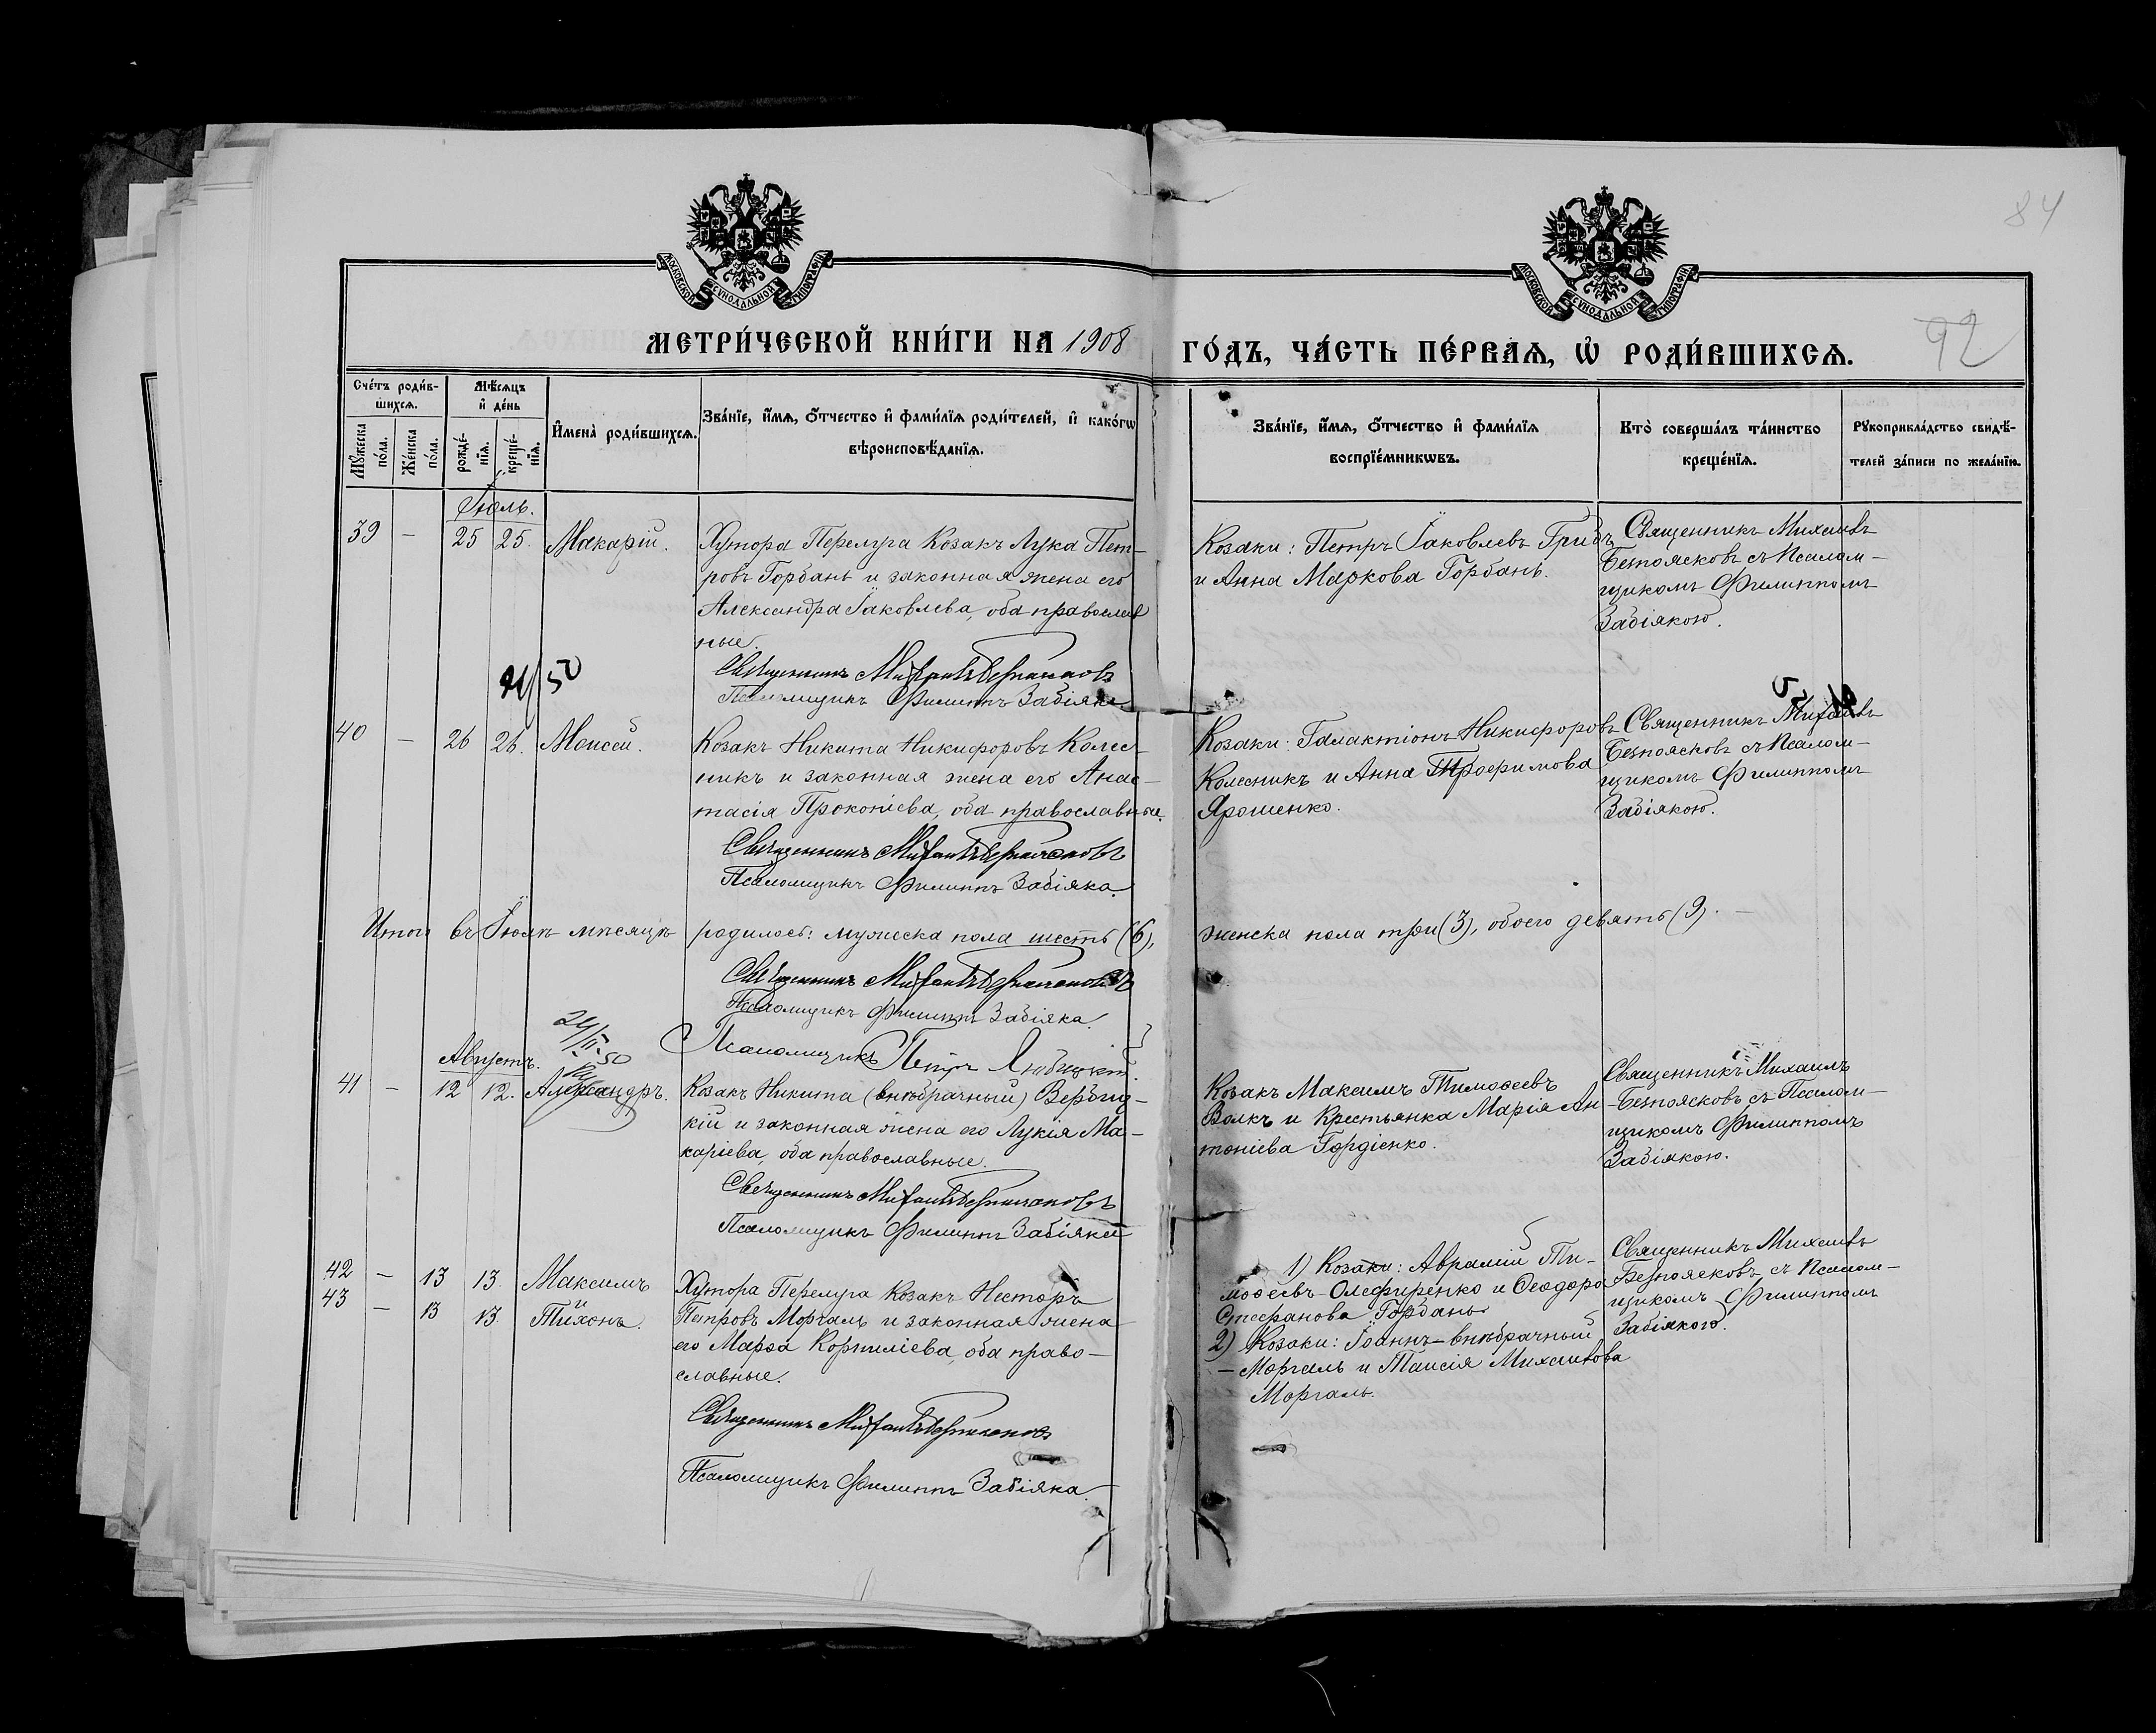 84
МОСКОВСКОЙ СѴНОДАЛЬНОЙ ТИПОГРАФІИ
МОСКОВСКОЙ СѴНОДАЛЬНОЙ ТИПОГРАФІИ
МЕТРИ́ЧЕСКОЙ КНИ́ГИ НА 1908
ГО́ДЪ, ЧА́СТЬ ПЕ́РВАѦ, Ѡ҆ РОДИ́ВШИХСѦ.
92
Сче́тъ роди́в-
шихсѧ.
Мꙋ́жеска по́ла.
Же́нска по́ла.
Мѣ́сѧцъ
и҆ де́нь
рожде́-
нїѧ.
креще́-
нїѧ.
И҆мена̀ роди́вшихсѧ.
Зва́нїе, и҆́мѧ, ѻ҆́тчество и҆ фами́лїѧ роди́телей, и҆ како́гѡ
вѣроисповѣ́данїѧ.
Зва́нїе, и҆́мѧ, ѻ҆́тчество и҆ фами́лїѧ
воспрїе́мникѡвъ.
Кто̀ соверша́лъ та́инство
креще́нїѧ.
Рꙋкоприкла́дство свидѣ́-
телей за́писи по жела́нїю.
Іюль.
39 — 25 25. Макарій.
Хутора Перелуга Козакъ Лука Пет-
ровъ Горбань и законная жена его
Александра Іаковлева, оба православ
ные.
Священникъ Михаилъ Безпоясковъ
Псаломщикъ Филиппъ Забіяка
Козаки: Петръ Іаковлевъ Гридъ
и Анна Маркова Горбань.
Священникъ Михаилъ
Безпоясковъ съ Псалом-
щикомъ Филиппомъ
Забіякою.
50
40 — 26 26. Моисей.
Козакъ Никита Никифоровъ Колес-
никъ и законная жена его Анас-
тасія Прокопіева, оба православные.
Священникъ Михаилъ Безпоясковъ
Псаломщикъ Филиппъ Забіяка.
Козаки: Галактіонъ Никифоровъ
Колесникъ и Анна Трофимова
Ярошенко.
Священникъ Михаилъ
Безпоясковъ съ Псалом-
щикомъ Филиппомъ
Забіякою.
Итого въ Іюлѣ мѣсяцѣ родилось: мужеска пола шесть (6),
женска пола три (3), обоего девять (9). —
Священникъ Михаилъ Безпоясковъ
Псаломщикъ Филиппъ Забіяка.
Псаломщикъ Петръ Любицкій.
24/II-50
Августъ.
41 — 12 12. Александръ.
Козакъ Никита (внѣбрачный) Вербиц-
кій и законная жена его Лукія Ма-
каріева, оба православные.
Священникъ Михаилъ Безпоясковъ
Псаломщикъ Филиппъ Забіяка
Козакъ Максимъ Тимоѳеевъ
Волкъ и Крестьянка Марія Ан-
тоніева Гордіенко.
Священникъ Михаилъ
Безпоясковъ съ Псалом-
щикомъ Филиппомъ
Забіякою.
42 — 13 13. Максимъ
43 — 13 13. Тихонъ.
Хутора Перелуга Козакъ Несторъ
Петровъ Моргаль и законная жена
его Марѳа Корниліева, оба право-
славные.
Священникъ Михаилъ Безпоясковъ
Псаломщикъ Филиппъ Забіяка.
1) Козаки: Аврамій Ти-
моѳеевъ Олефиренко и Ѳеодора
Стефанова Горбань
2) Козаки: Іоаннъ - внѣбрачный
- Моргаль и Таисія Михаилова
Моргаль.
Священникъ Михаилъ
Безпоясковъ съ Псалом-
щикомъ Филиппомъ
Забіякою.